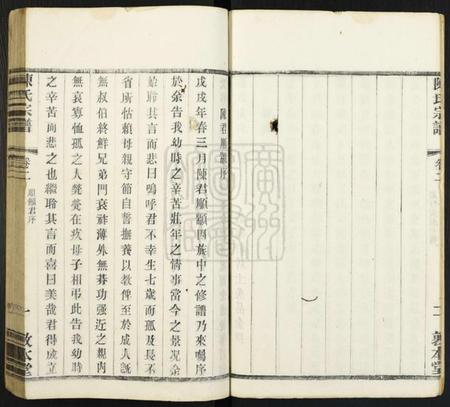 陳氏宗譜
卷二
二
敦本堂
陳君順顯序
戊戌年春三月陳君順顯因族中之修譜乃來囑序
於余告我幼時之辛苦壯年之情事當今之景况余
始聆其言而悲曰嗚呼君不幸生七歲而孤及長不
省所怙賴母親守節自誓撫養以教俾至於成人既
無叔伯終鮮兄弟門衰祚薄外無朞功强近之親內
無哀寡恤孤之人煢煢在疚母子相弔此告我幼時
之辛苦而悲之也繼聆其言而喜曰美哉君得成立
陳氏宗譜
卷二
順顯君序
一
敦本堂